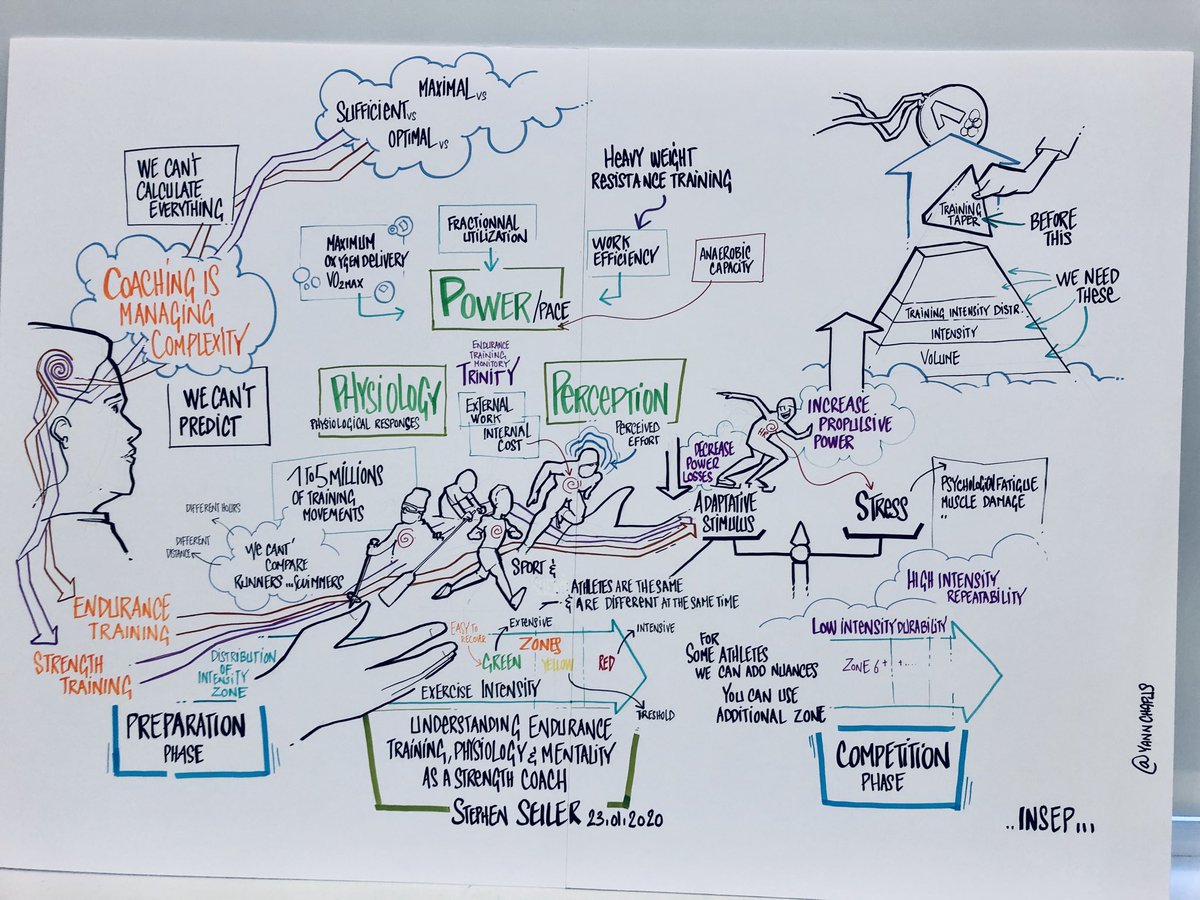 MAXIMAL VS
SUFFICIENT VS
OPTIMAL VS
WE CAN'T
CALCULATE
EVERYTHING
COACHING IS
MANAGING
COMPLEXITY
WE CAN'T
PREDICT
MAXIMUM
OXYGEN DELIVERY
VO2MAX
FRACTIONNAL
UTILIZATION
HEAVY WEIGHT
RESISTANCE TRAINING
WORK
EFFICIENCY
ANAEROBIC
CAPACITY
POWER/PACE
ENDURANCE
TRAINING
MONITORY
TRINITY
PHYSIOLOGY
PHYSIOLOGICAL RESPONCES
PERCEPTION
EXTERNAL
WORK
INTERNAL
COST
PERCEIVED
EFFORT
TRAINING
TAPER
BEFORE
THIS
WE NEED
THESE
TRAINING INTENSITY DISTR.
INTENSITY
VOLUME
INCREASE
PROPULSIVE
POWER
DECREASE
POWER
LOSSES
ADAPTATIVE
STIMULUS
STRESS
MUSCLE DAMAGE
..
1 TO 5 MILLIONS
OF TRAINING
MOVEMENTS
DIFFERENT HOURS
DIFFERENT
DISTANCE
WE CANT'
COMPARE
RUNNERS...SWIMMERS
SPORT &
ATHLETES ARE THE SAME
& ARE DIFFERENT AT THE SAME TIME
ENDURANCE
TRAINING
STRENGTH
TRAINING
DISTRIBUTION
OF
INTENSITY
ZONE
PREPARATION
PHASE
EASY TO
RECOVER
EXTENSIVE
ZONES
INTENSIVE
GREEN
YELLOW
RED
EXERCISE INTENSITY
TRESHOLD
UNDERSTANDING ENDURANCE
TRAINING, PHYSIOLOGY & MENTALITY
AS A STRENGTH COACH
STEPHEN SEILER 23.01.2020
FOR
SOME ATHLETES
WE CAN ADD NUANCES
YOU CAN USE
ADDITIONAL ZONE
HIGH INTENSITY
REPEATABILITY
LOW INTENSITY DURABILITY
ZONE 6 + + ...
COMPETITION
PHASE
..INSEP...